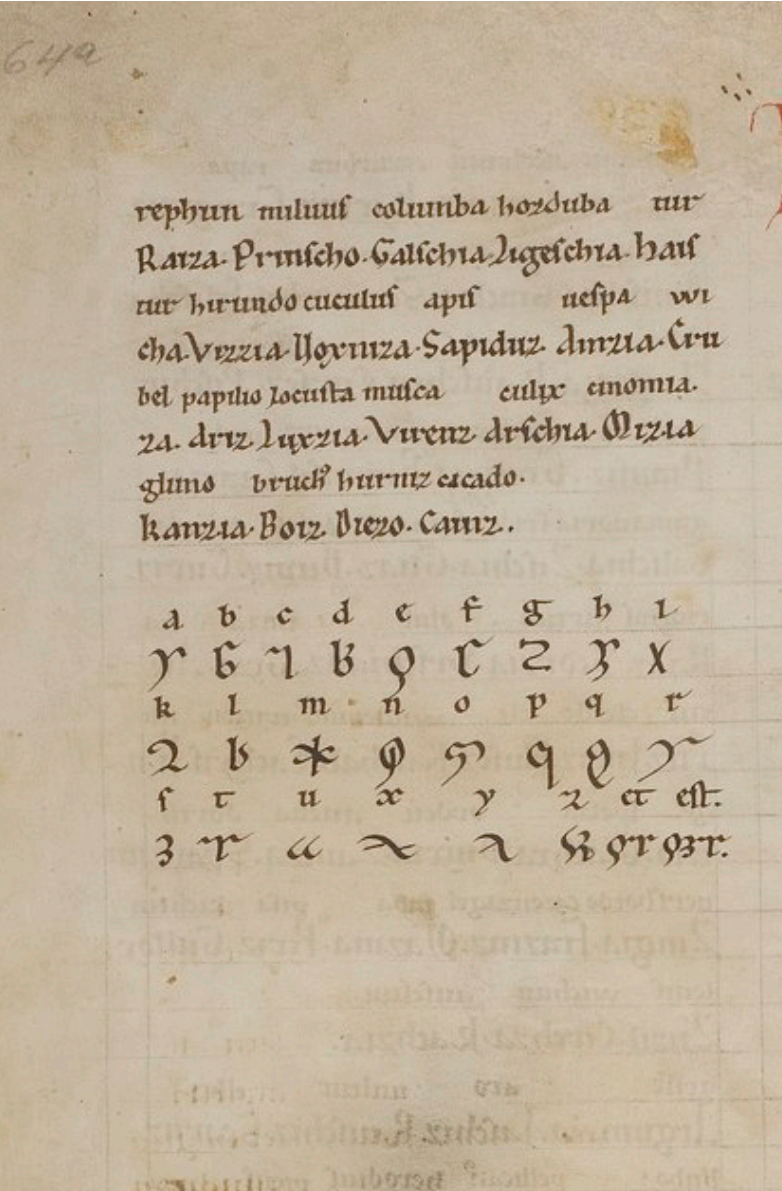 64a
rephun miluuſ columba horduba tur
Raiza. Prinſcho. Galſchia. Ligeſchia. haiſ
tur hirundo cuculuſ apiſ ueſpa wi
cha. Vizzia. Sapiduz. Amzia. Cru
bel papilio locuſta muſca culix cinomia.
za. Ariz. Luxzia. Virenz. Arſchia. Mizia
glimo bruch᷑ hurniz cicado.
kanzia. Boiz. Diezo. Cauiz.
a b c d e f g h i
k l m n o p q r
ſ t u x y z et eſt.